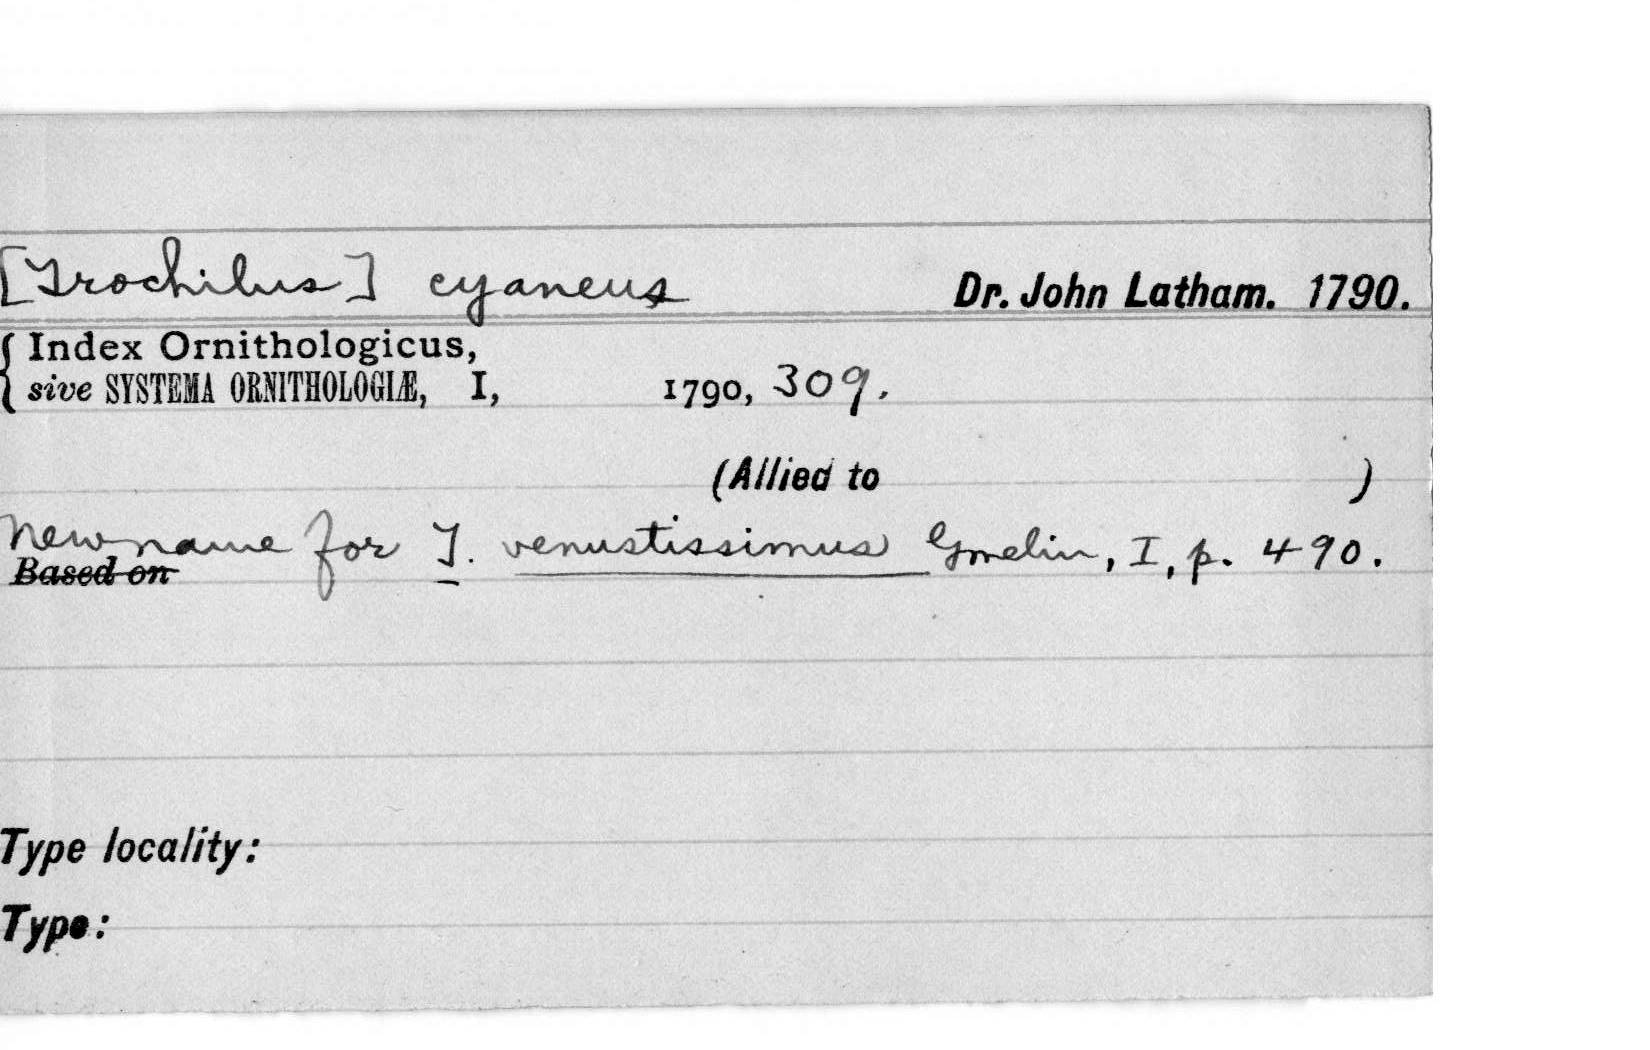 [Trochilus] cyaneus Dr. John Latham. 1790.
Index Ornithologicus,
sive SYSTEMA ORNITHOLOGIÆ, I, 1790, 309.
(Allied to )
New name for T. venustissimus Gmelin, I, p. 490.
Based on
Type locality:
Type: